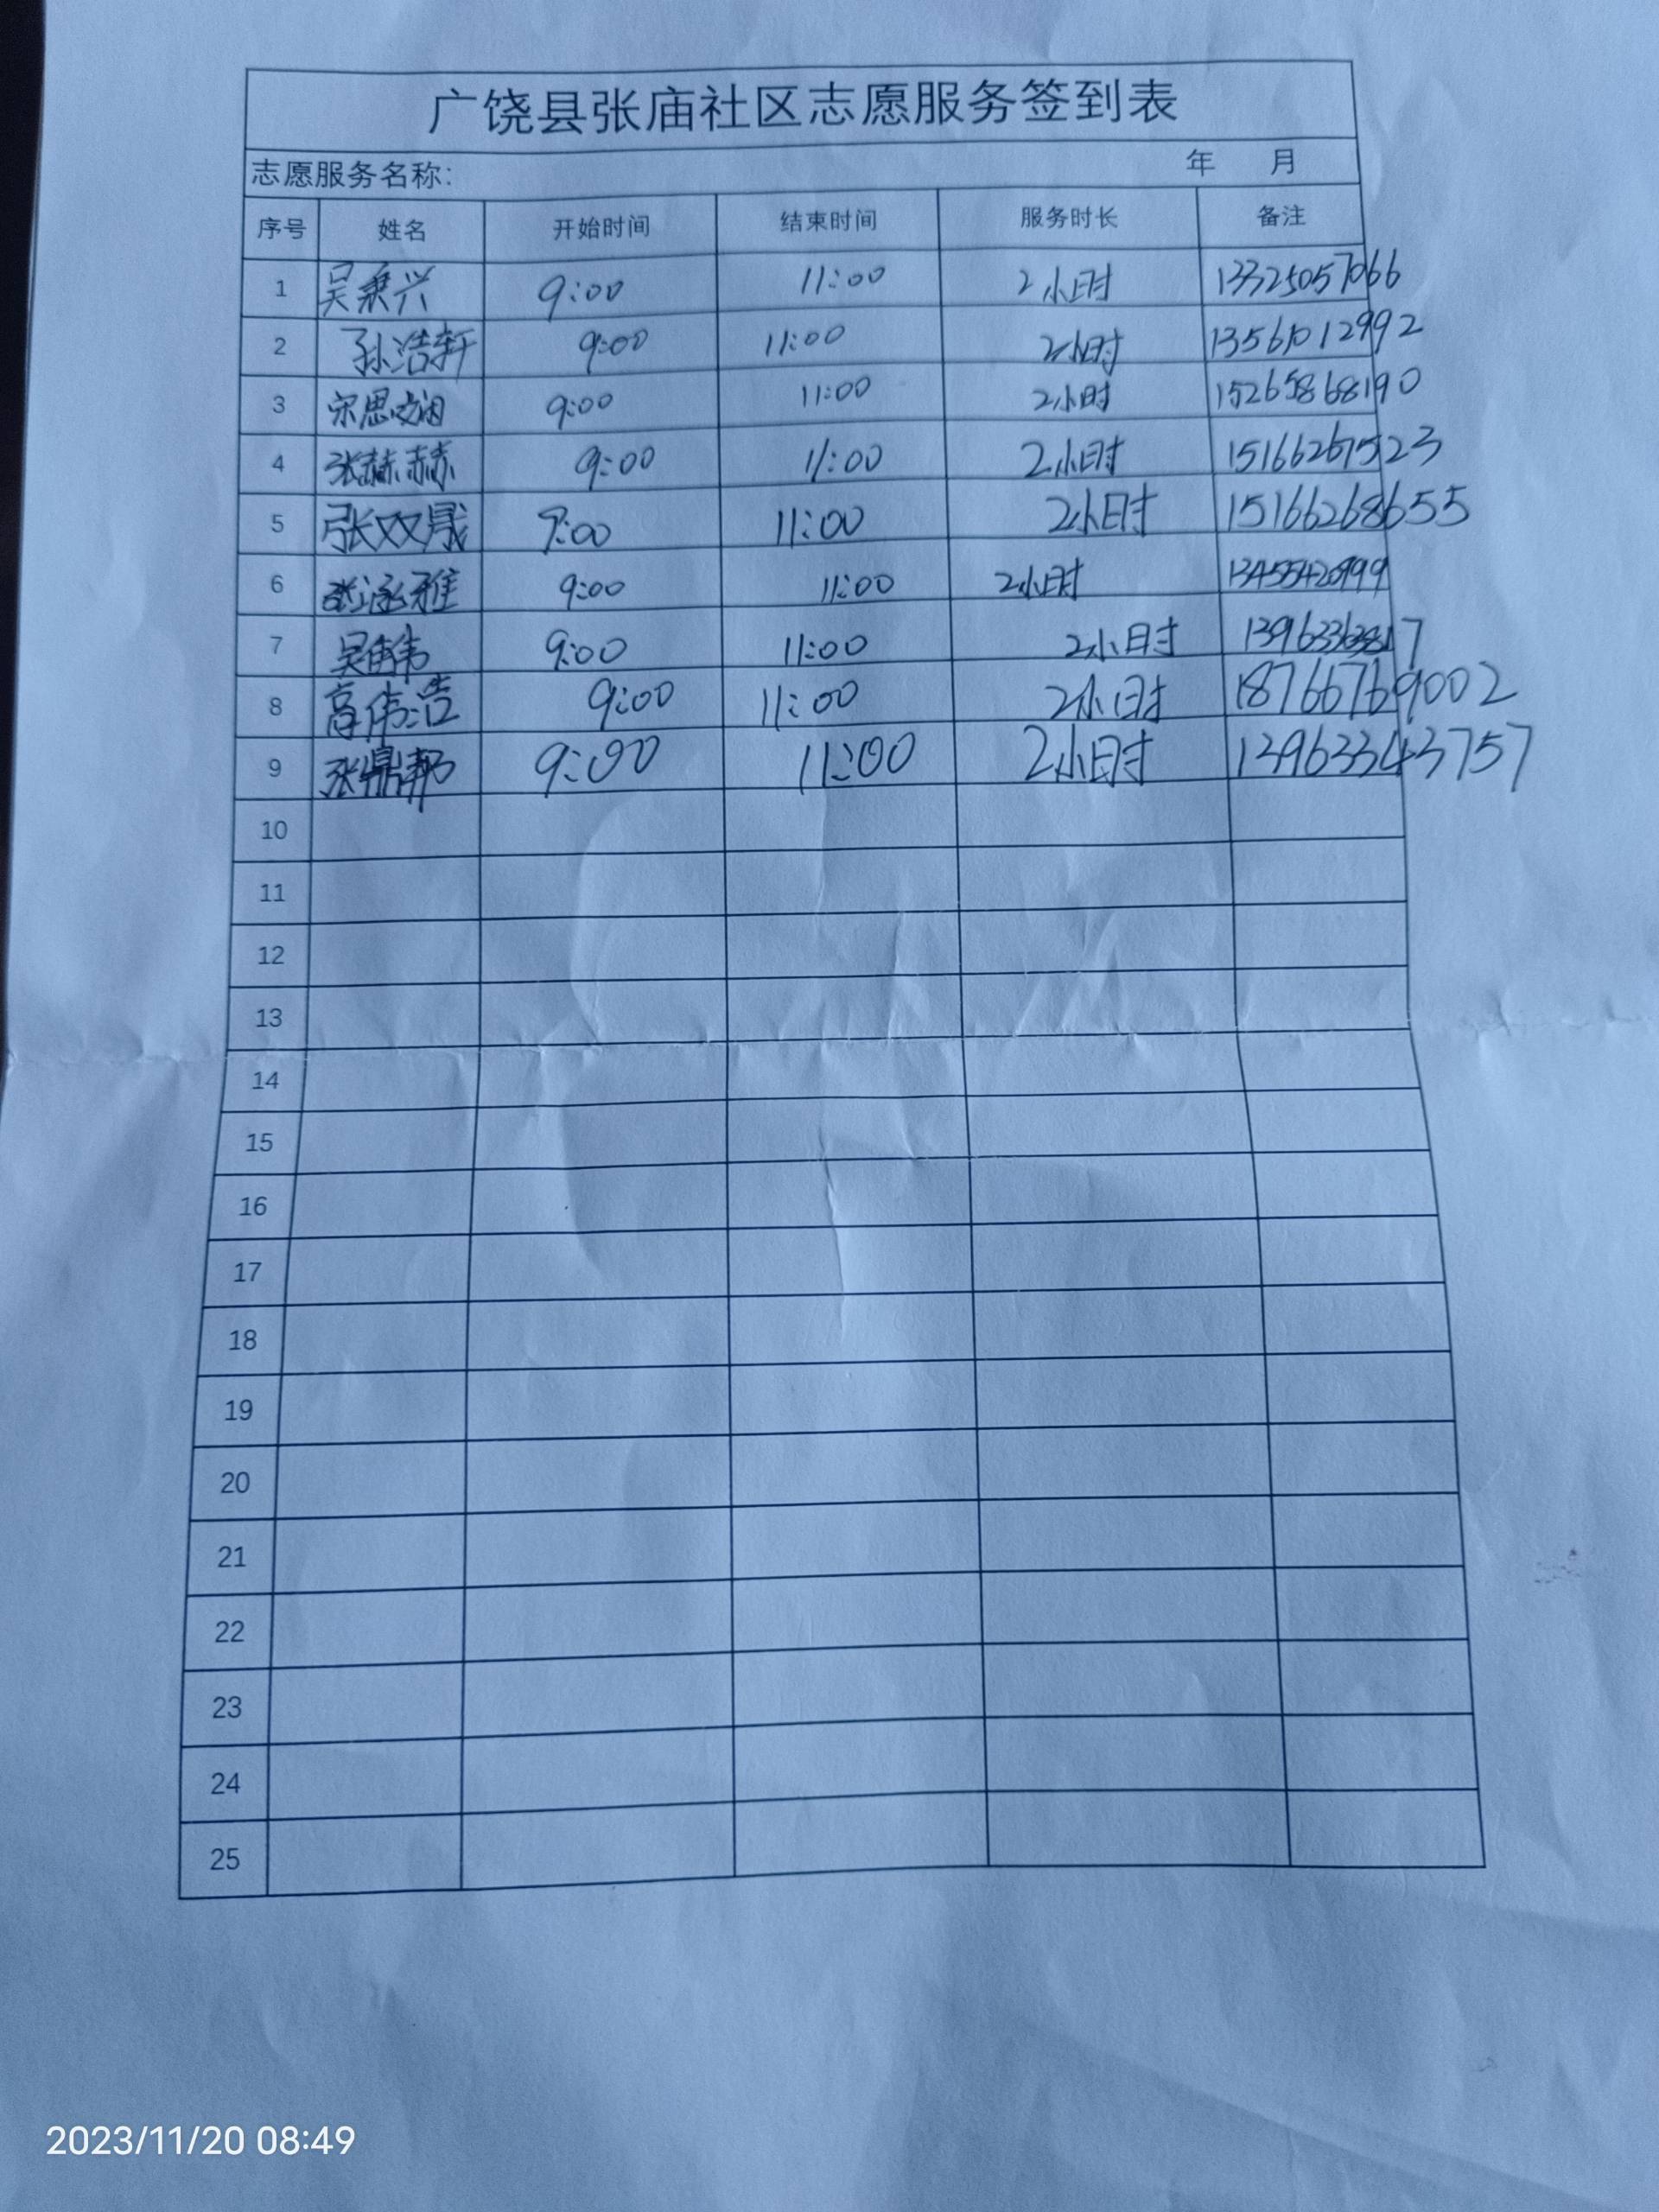 广饶县张庙社区志愿服务签到表
志愿服务名称: 年 月
序号 姓名 开始时间 结束时间 服务时长 备注
1 吴秉兴 9:00 11:00 2小时 13325057066
2 孙浩轩 9:00 11:00 2小时 13561012992
3 宋思 9:00 11:00 2小时 15265868190
4 张赫赫 9:00 11:00 2小时 15166267523
5 张双晟 9:00 11:00 2小时 15166268655
6 张涵雅 9:00 11:00 2小时
7 吴 9:00 11:00 2小时
8 高伟浩 9:00 11:00 2小时 18766769002
9 张鼎邦 9:00 11:00 2小时 13963343757
10
11
12
13
14
15
16
17
18
19
20
21
22
23
24
25
2023/11/20 08:49